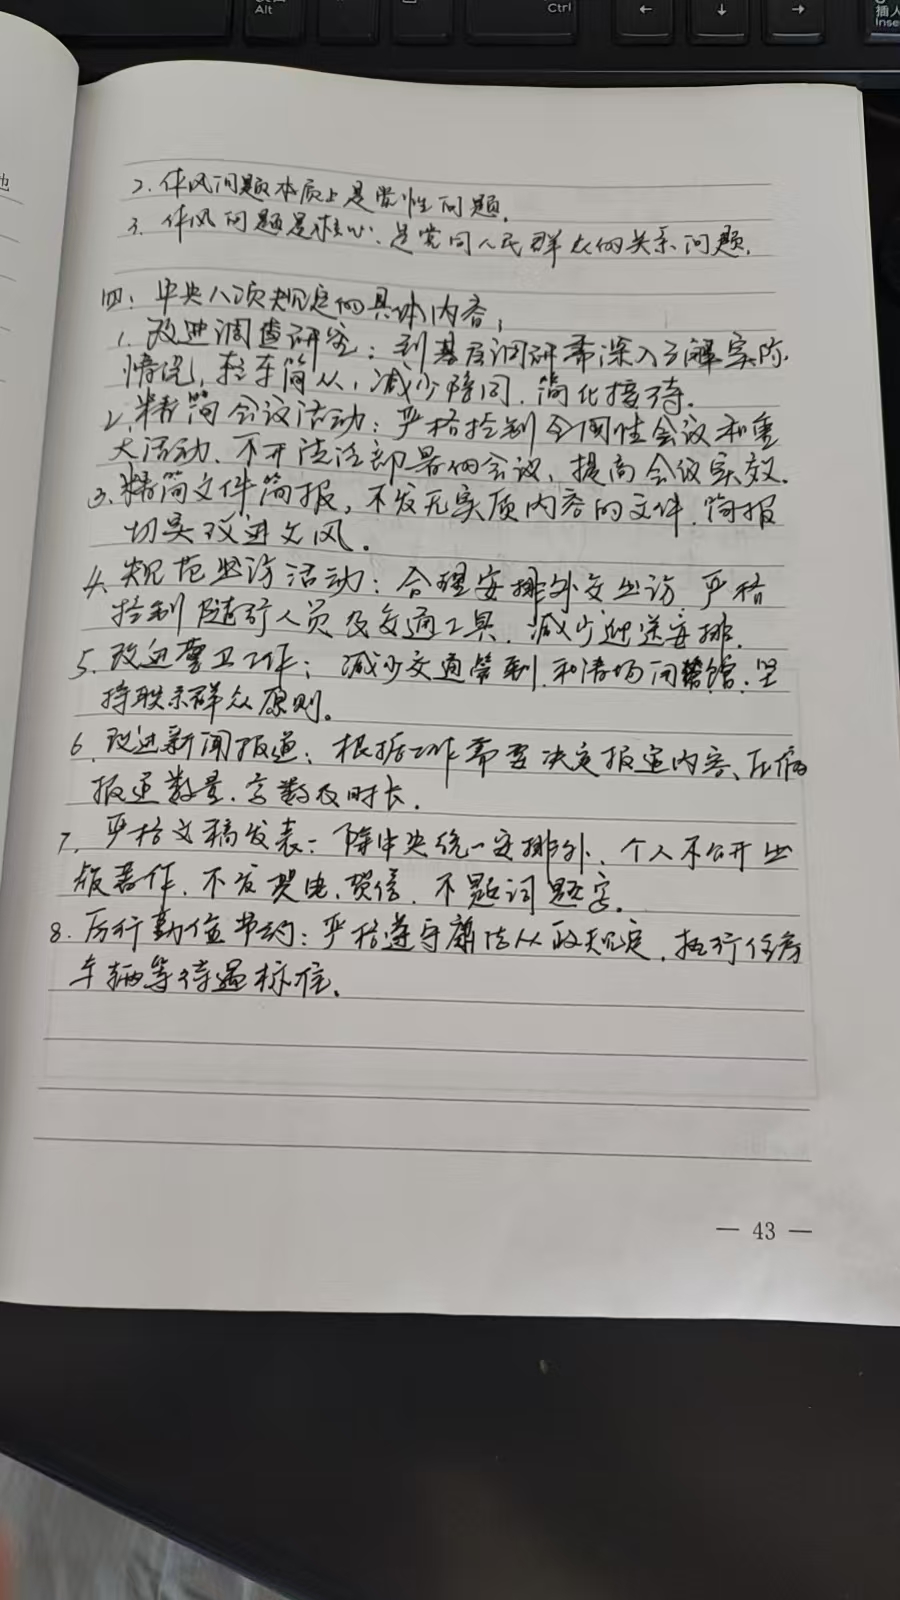 Alt
Ctrl
←
↓
→
插入
Inse
2. 作风问题本质上是党性问题.
3. 作风问题是核心、是党同人民群众的关系问题.
四、中央八项规定的具体内容;
1. 改进调查研究:到基层调研需深入了解实际
情况,轻车简从,减少陪同.简化接待.
2. 精简会议活动:严格控制全国性会议和重
大活动.不开泛泛部署的会议,提高会议实效.
3. 精简文件简报,不发无实质内容的文件.简报
切实改进文风。
4. 规范出访活动:合理安排外交出访 严格
控制随行人员及交通工具.减少迎送安排.
5. 改进警卫工作;减少交通管制.和清场闭馆.坚
持联系群众原则.
6. 改进新闻报道:根据工作需要决定报道内容、压缩
报道数量.字数及时长.
7. 严格文稿发表:除中央统一安排外.个人不公开出
版著作.不发贺电.贺信.不题词题字.
8. 厉行勤俭节约:严格遵守廉洁从政规定.执行住房
车辆等待遇标准.
— 43 —